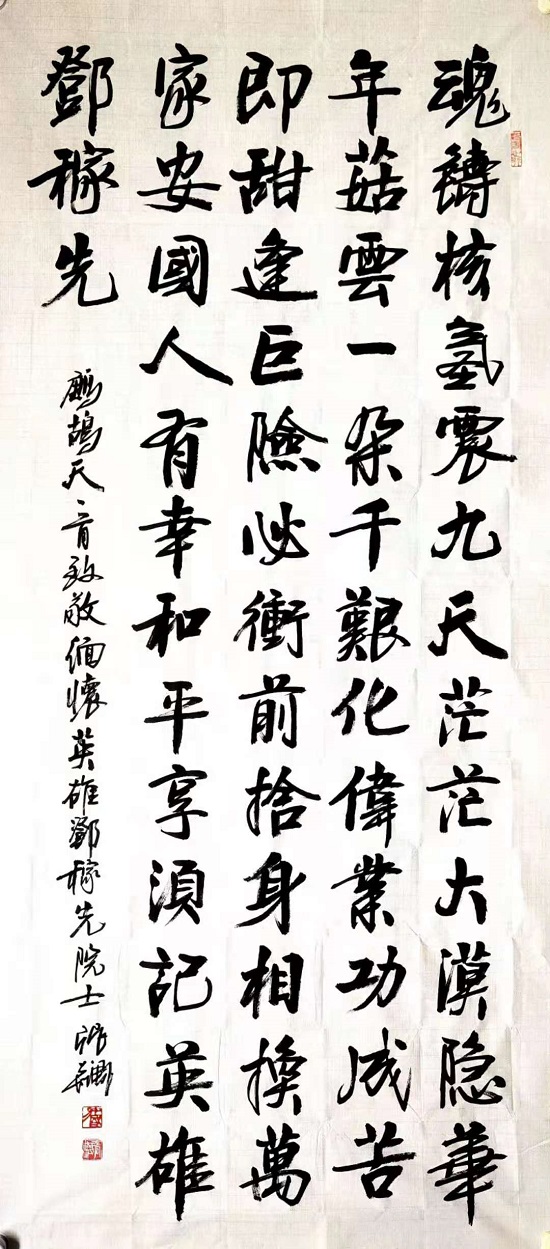 魂鑄核氫震九天茫茫大漠隐華
年菇雲一朶千艱化偉業功成苦
即甜逢巨險必衝前捨身相換萬
家安國人有幸和平享須記英雄
鄧稼先
鷓鴣天、一首致敬缅懷英雄鄧稼先院士